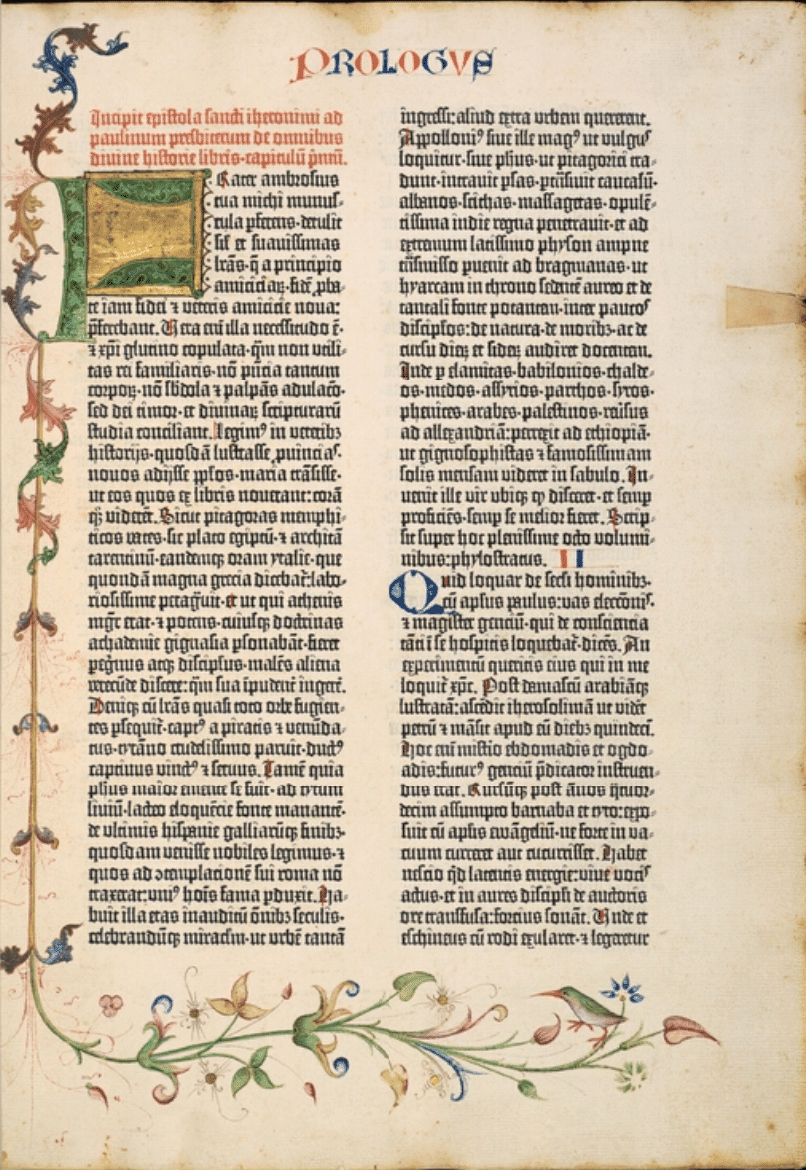 PROLOGVS
Incipit epistola sancti iheronimi ad
paulinum presbiterum de omnibus
divine historie libris·capitulũ p̃mũ.
Frater ambrosius
tua michi munus-
cula ꝑferens·detulit
sił et suavissimas
lr̃as·q̃ a principio
amiciciaꝝ·fidẽ ꝓba-
te iam fidei ⁊ veteris amicicie nova:
p̃ferebant. Vera em̃ illa necessitudo ẽ·
⁊ xp̃i glutino copulata·q̃m non utili-
tas rei familiaris·nõ p̃ncia tantum
corporꝫ·nõ sbdola ⁊ palpãs adulaco·
sed dei timor·et divinaꝝ scripturarũ
studia conciliant. Legimꝰ in veteribꝫ
historijs·quosdã lustrasse ꝓuincias·
novos adijsse ppłos·maria trãsisse·
ut eos quos ex libris noverant: corã
qꝫ viderẽt. Sicut pitagoras memphi-
ticos vates·sic plato egiptũ·⁊ architã
tarentinũ·eandemqꝫ oram ytalie·que
quondã magna grecia dicebat̃: labo-
riosissime peragr̃vit·et ut qui athenis
mgr̃ erat·⁊ potens·cuiusqꝫ doctrinas
achademie gignasia ꝑsonabãt·fieret
peg̃nus atqꝫ discipłus·malẽs aliena
verecũde discere: q̃m sua ĩpudent̃ ingerẽ.
Deniqꝫ cũ lr̃as quasi toto orbe fugien-
tes ꝑsequit̃·captꝰ a piratis ⁊ venũda-
tus·tyrãno crudelissimo paruit·ductꝰ
captivus vinctꝰ ⁊ servus. Tamẽ quia
phłus maior emente se fuit·ad tytum
liviũ·lacteo eloquẽcie fonte manantẽ·
de ultimis hispanie galliarũqꝫ finibꝫ·
quosdam venisse nobiles legimus·⁊
quos ad ꝯtemplationẽ sui roma nõ
traxerat: uniꝰ hoĩs fama ꝑduxit. Ha-
buit illa etas inauditũ õnibꝫ seculis·
celebrandũqꝫ miraclm·ut urbẽ tantã
ingressi: aliud extra urbem quererent.
Appolloniꝰ sive ille magꝰ ut vulgus
loquitur·sive phłus·ut pitagorici tra-
dunt·intravit ꝑsas·ꝑtr̃sivit caucasũ·
albanos·scithas·massagetas·opulẽ-
tissima indie regna penetravit·et ad
extremum latissimo physon ampne
trãsmisso ꝑuenit ad bragmanas·ut
hyarcam in throno sedentẽ aureo et de
tantali fonte potantem·inter paucos
discipłos: de natura·de moribꝫ·ac de
cursu dieꝝ et sideꝝ audiret docentem.
Inde ꝑ elamitas·babilonios·chalde-
os·medos·assyrios·parthos·syros·
phenices·arabes·palestinos·reũsus
ad allexandriã: perrexit ad ethiopiã·
ut gignosophistas ⁊ famosissimam
solis mensam videret in sabulo. In-
venit ille vir ubiqꝫ qꝫ disceret·et semꝑ
proficiẽs·semꝑ se melior fieret. Scrip-
sit super hoc plenissime octo volumi-
nibus: phylostratus. II
Quid loquar de seĉli hominibꝫ·
cũ apłus paulus: vas electõnis·
⁊ magister genciũ·qui de consciencia
tãti ĩ se hospitis loquebat̃·dicẽs. An
experimentũ queritis eius qui in me
loquit̃ xp̃c. Post damascũ arabiãqꝫ
lustratã: ascẽdit iherosolimã ut vidẽt
petrũ ⁊ mãsit apud eũ diebꝫ quindecĩ.
Hoc em̃ misterio ebdomadis et ogdo-
adis: futurꝰ genciũ p̃dicator instruen-
dus erat. Rursũqꝫ post ãnos q̃tuor-
decim assumpto barnaba et tyto: expo-
suit cũ apłis ewãgeliũ·ne forte in va-
cuum curreret aut cucurrisset. Habet
nescio q̃d latentis energie: vive vocis
actus·et in aures discipłi de auctoris
ore transfusa: forcius sonat. Unde et
eschineus cũ rodi exularet·⁊ legeretur